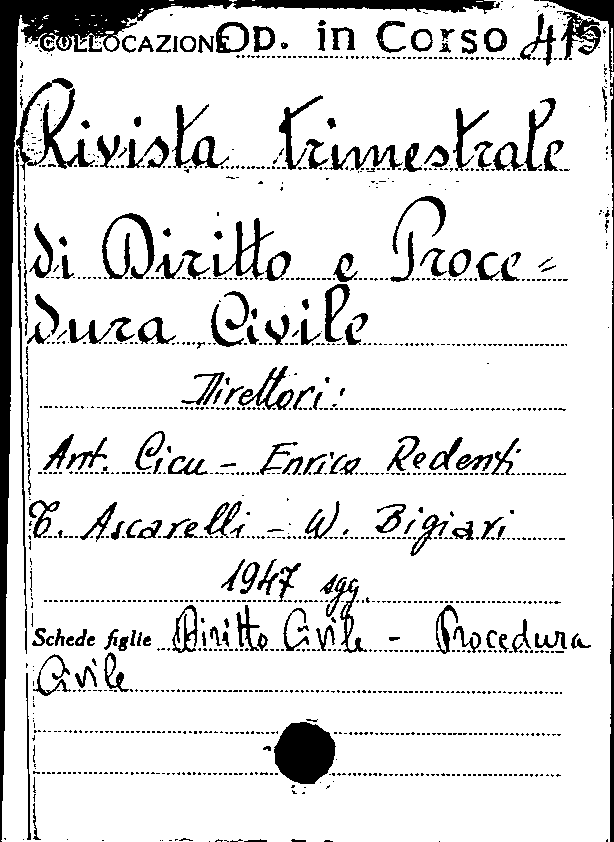 COLLOCAZIONE Op. in Corso 419
Rivista trimestrale
di Diritto e Proce=
dura Civile
Direttori:
Ant. Cicu - Enrico Redenti
T. Ascarelli - W. Bigiari
1947 sgg.
Schede figlie Diritto Civile - Procedura
Civile